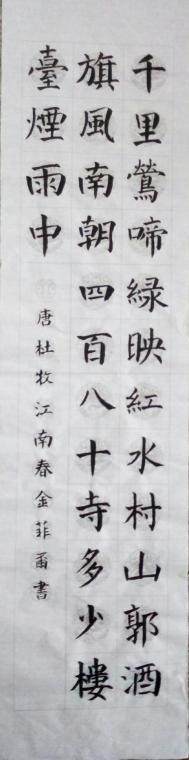 千里鶯啼緑映紅水村山郭酒
旗風南朝四百八十寺多少樓
臺煙雨中
唐杜牧江南春金菲爾書